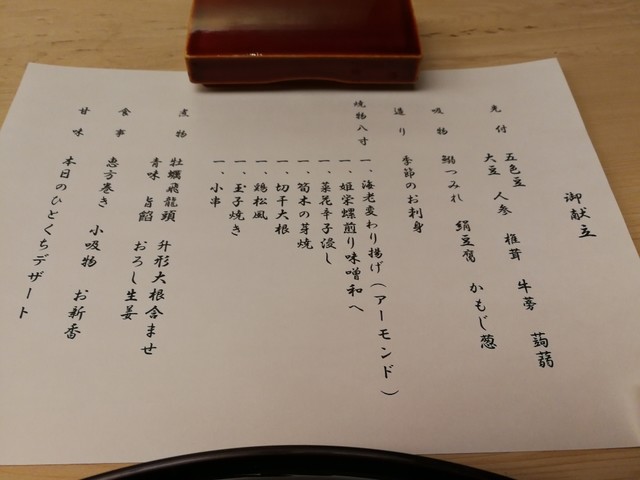 御献立
先付
五色豆 人参 椎茸 牛蒡 蒟蒻
大豆
吸物
鰯つみれ 絹豆腐 かもじ葱
造り
季節のお刺身
焼物八寸
一、海老変わり揚げ(アーモンド)
一、姫栄螺煎り味噌和へ
一、菜花辛子浸し
一、筍木の芽焼
一、切干大根
一、鶏松風
一、玉子焼き
一、小串
煮物
牡蠣飛龍頭 升形大根含ませ
青味 旨餡 おろし生姜
食事
恵方巻き 小吸物 お新香
甘味
本日のひとくちデザート